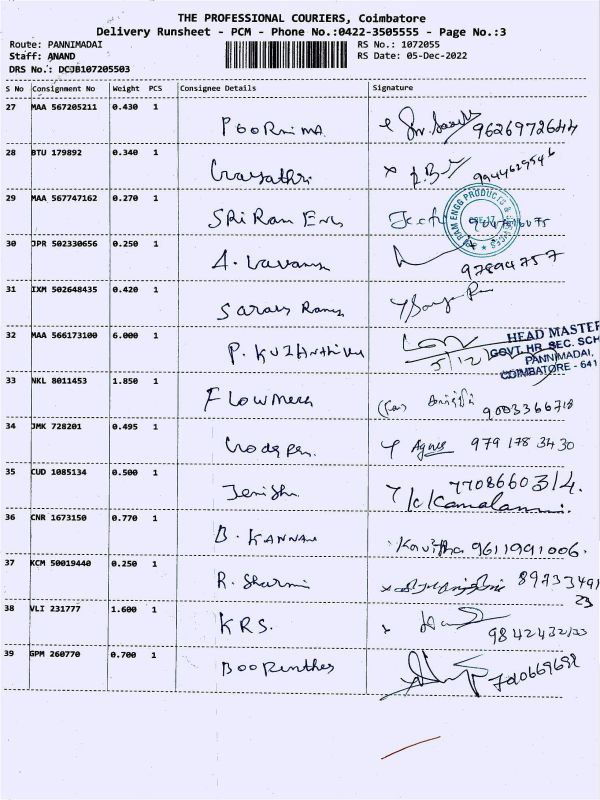 THE PROFESSIONAL COURIERS, Coimbatore
Delivery Runsheet - PCM - Phone No.:0422-3505555 - Page No.:3
Route: PANNIMADAI RS No.: 1072055
Staff: ANAND RS Date: 05-Dec-2022
DRS No.: DCJB107205503
S No Consignment No Weight PCS Consignee Details Signature
27 MAA 567205211 0.430 1
Poornima 9626972644
28 BTU 179892 0.340 1
Gayathri 9944629546
29 MAA 567747162 0.270 1
Sri Ram Eng
RAM ENGG PRODUCTS &
30 JPR 502330656 0.250 1
A. Lavanya 97894757
31 IXM 502648435 0.420 1
32 MAA 566173100 6.000 1
HEAD MASTER
GOVT. HR. SEC. SCH
PANNIMADAI,
COIMBATORE - 641
5/12/
33 NKL 8011453 1.850 1
9003366718
34 JMK 728201 0.495 1
Agnes 979 178 34 30
35 CUD 1085134 0.500 1
Jenisha 7708660314.
36 CNR 1673150 0.770 1
B. KANNAN Kavitha 9611991006.
37 KCM 50019440 0.250 1
R. Sharmi 89733491
23
38 VLI 231777 1.600 1
KRS.
39 GPM 260770 0.700 1